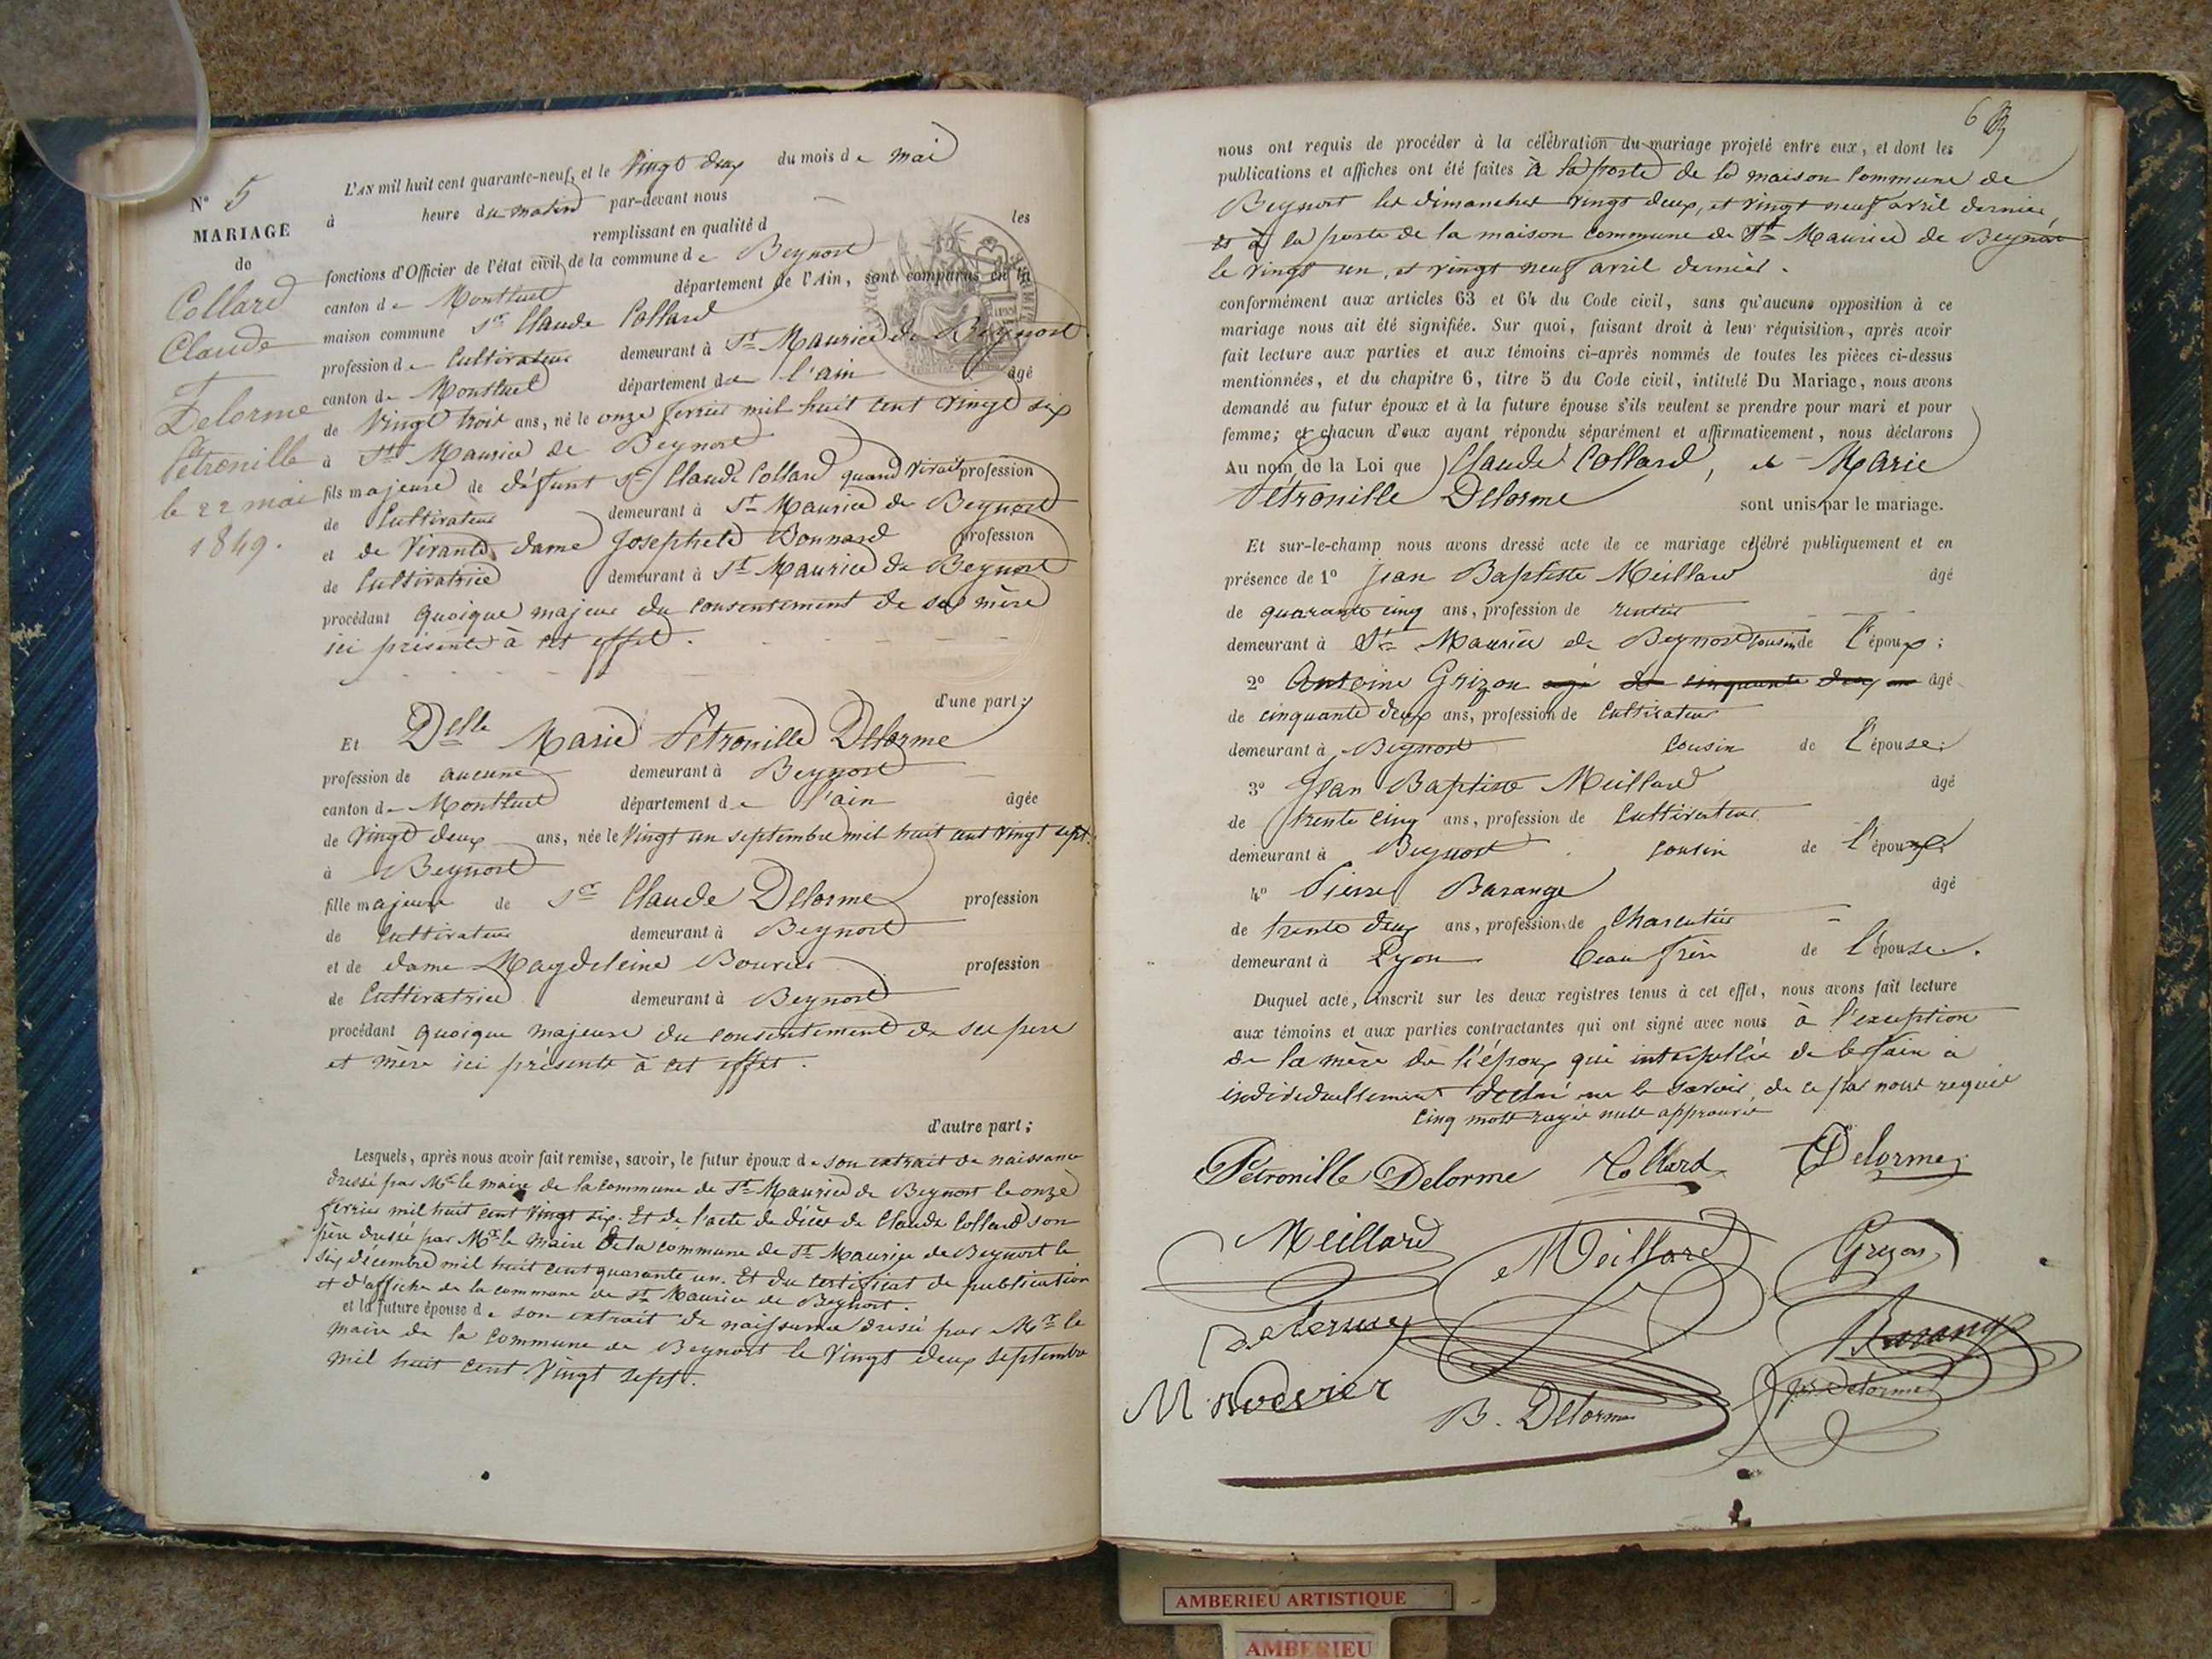 N° 5
MARIAGE
de
Collard
Claude
et
Delorme
Pétronille
le 22 mai
1849.
L'AN mil huit cent quarante-neuf, et le Vingt deux du mois de mai
à heure du matin par-devant nous
remplissant en qualité d les
fonctions d'Officier de l'état civil de la commune de Beynost
canton de Montluel département de l'Ain, sont comparus en la
maison commune Sr Claude Collard
profession de Cultivateur demeurant à St Maurice de Beynost
canton de Montluel département de l'ain âgé
de Vingt trois ans, né le onze fevrier mil huit cent vingt six
à St Maurice de Beynost
fils majeure de défunt Sr Claude Collard quand vivait profession
de Cultivateur demeurant à St Maurice de Beynost
et de Vivante dame Josephete Bonnard profession
de Cultivatrice demeurant à St Maurice de Beynost
procédant quoique majeur du consentement de sa mère
ici présente à cet effet.
d'une part;
Et Delle Marie Pétronille Delorme
profession de aucune demeurant à Beynost
canton de Montluel département de l'ain âgée
de Vingt deux ans, née le Vingt un septembre mil huit cent vingt sept.
à Beynost
fille majeure de Sr Claude Delorme profession
de Cultivateur demeurant à Beynost
et de dame Magdeleine Bouvier profession
de Cultivatrice demeurant à Beynost
procédant quoique majeure du consentement de ses pere
et mère ici présents à cet effet.
d'autre part;
Lesquels, après nous avoir fait remise, savoir, le futur époux de son extrait de naissance
dressé par Mr le maire de la commune de St Maurice de Beynost le onze
fevrier mil huit cent vingt six. Et de l'acte de décès de Claude Collard son
père dressé par Mr le Maire de la commune de St Maurice de Beynost le
six décembre mil huit cent quarante un. Et du certificat de publication
et d'affiche de la commune de St Maurice de Beynost.
et la future épouse de son extrait de naissance dressé par Mr le
maire de la commune de Beynost le Vingt deux septembre
mil huit cent Vingt sept.
6
nous ont requis de procéder à la célébration du mariage projeté entre eux, et dont les
publications et affiches ont été faites à la porte de la maison commune de
Beynost les dimanches vingt deux, et vingt neuf avril dernier,
et à la porte de la maison commune de St Maurice de Beynost
le vingt un, et vingt neuf avril dernier.
conformément aux articles 63 et 64 du Code civil, sans qu'aucune opposition à ce
mariage nous ait été signifiée. Sur quoi, faisant droit à leur réquisition, après avoir
fait lecture aux parties et aux témoins ci-après nommés de toutes les pièces ci-dessus
mentionnées, et du chapitre 6, titre 5 du Code civil, intitulé Du Mariage, nous avons
demandé au futur époux et à la future épouse s'ils veulent se prendre pour mari et pour
femme; et chacun d'eux ayant répondu séparément et affirmativement, nous déclarons
Au nom de la Loi que Claude Collard, et Marie
Pétronille Delorme sont unis par le mariage.
Et sur-le-champ nous avons dressé acte de ce mariage célébré publiquement et en
présence de 1° Jean Baptiste Meillard âgé
de quarante cinq ans, profession de rentier
demeurant à St Maurice de Beynost cousin de l'époux;
2° Antoine Grizon agé de cinquante deux an âgé
de cinquante deux ans, profession de Cultivateur
demeurant à Beynost Cousin de l'épouse;
3° Jean Baptiste Meillard âgé
de trente cinq ans, profession de Cultivateur
demeurant à Beynost cousin de l'époux;
4° Pierre Barange âgé
de trente deux ans, profession de Charcutier
demeurant à Lyon beau frère de l'épouse.
Duquel acte, inscrit sur les deux registres tenus à cet effet, nous avons fait lecture
aux témoins et aux parties contractantes qui ont signé avec nous à l'exception
de la mère de l'époux qui interpellée de le faire a
individuellement déclaré ne le savoir, de ce par nous requis
cinq mots rayés nuls approuvés
Pétronille Delorme Collard Delorme
Meillard Meillard Grizon
Barange
M Bouvier B. Delorme Delorme
AMBERIEU ARTISTIQUE
AMBERIEU